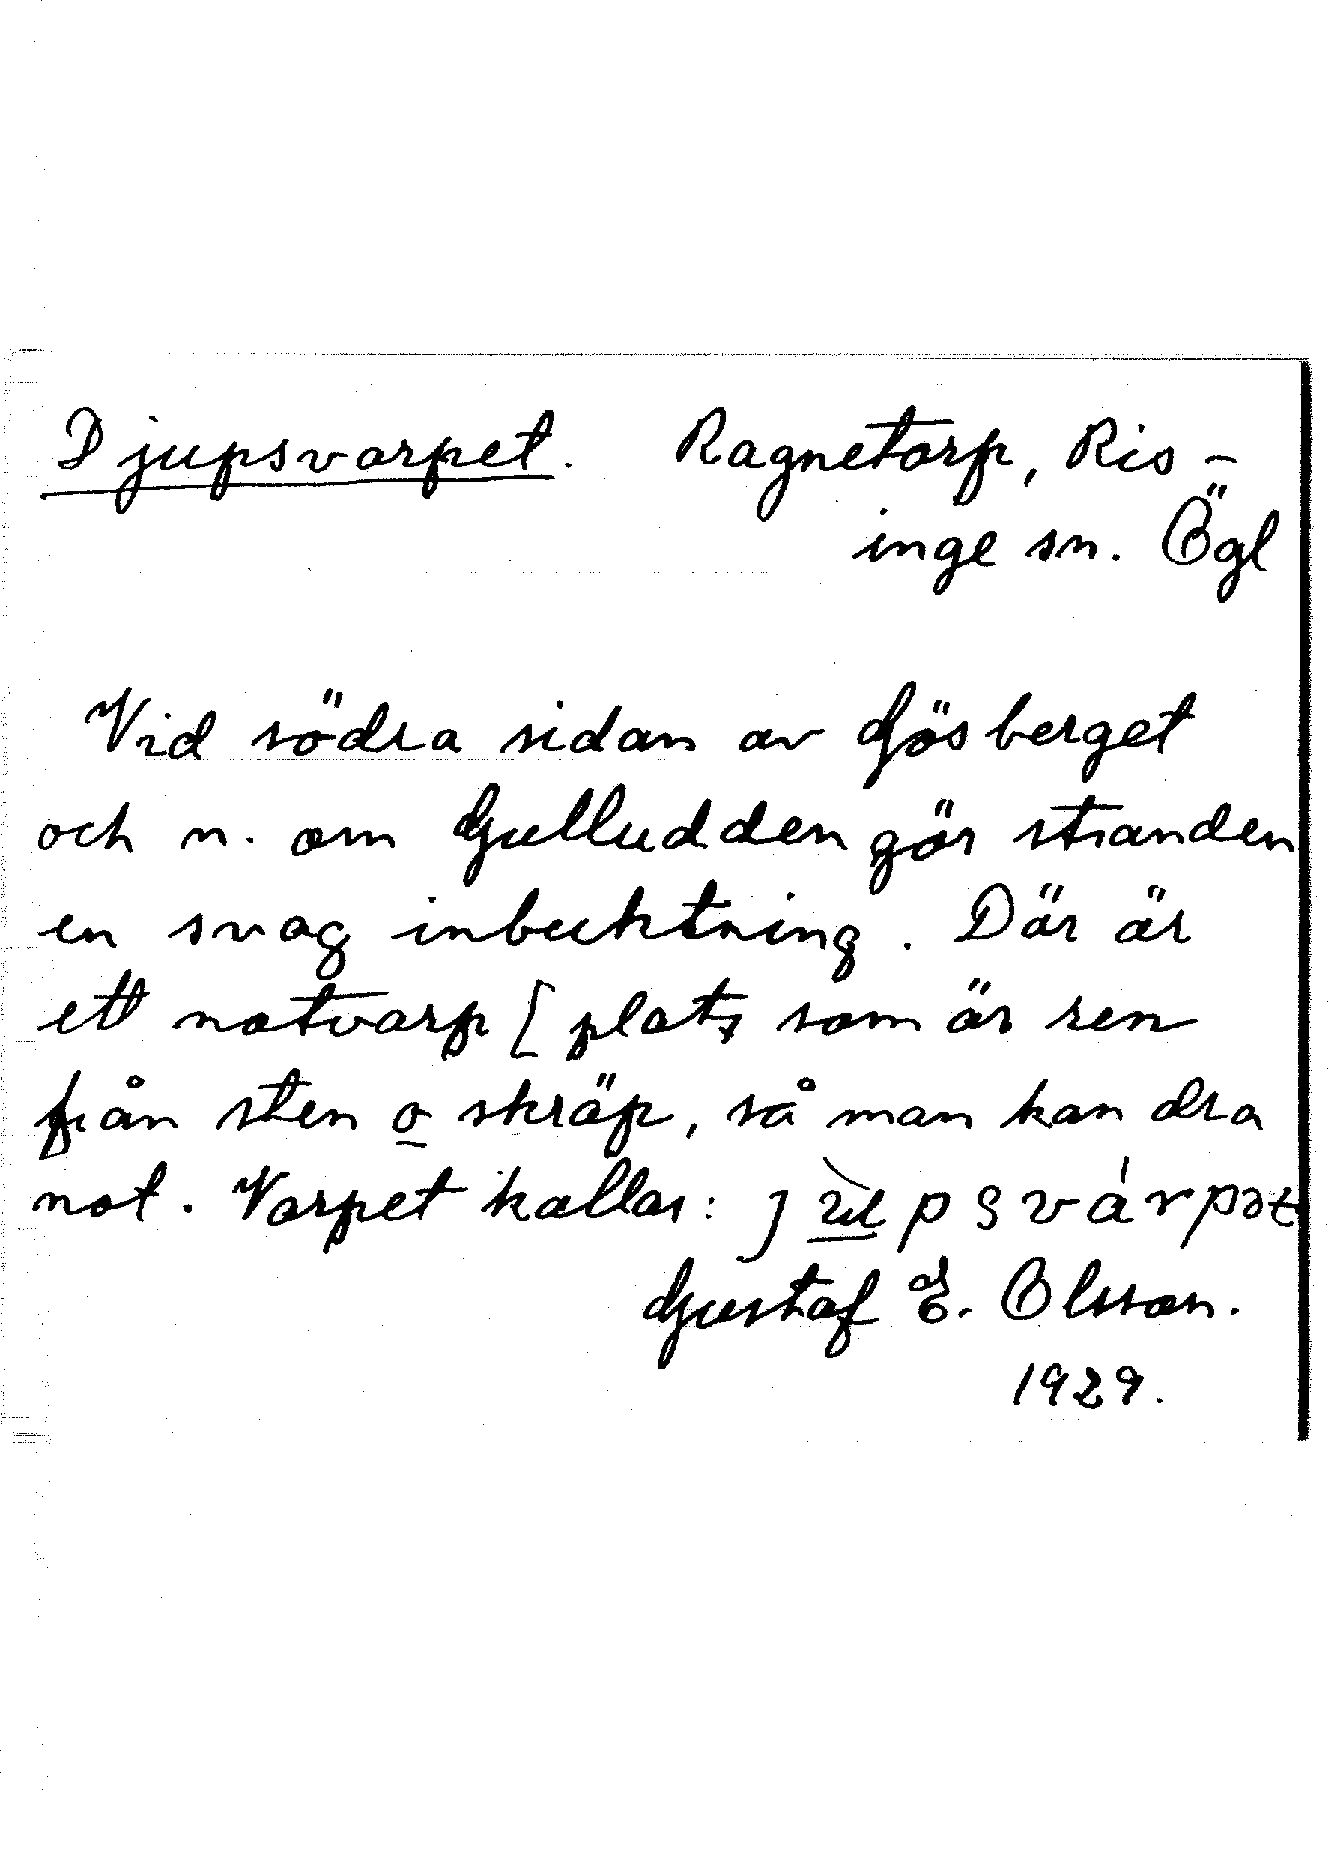 Djupsvarpet. Ragnetorp, Ris-
inge sn. Ögl
Vid södra sidan av Gösberget
och n. om Gulludden gör stranden
en svag inbuktning. Där är
ett notvarp [plats som är ren
från sten o skräp, så man kan dra
not. Varpet kallas:
Gustaf E. Olsson.
1929.